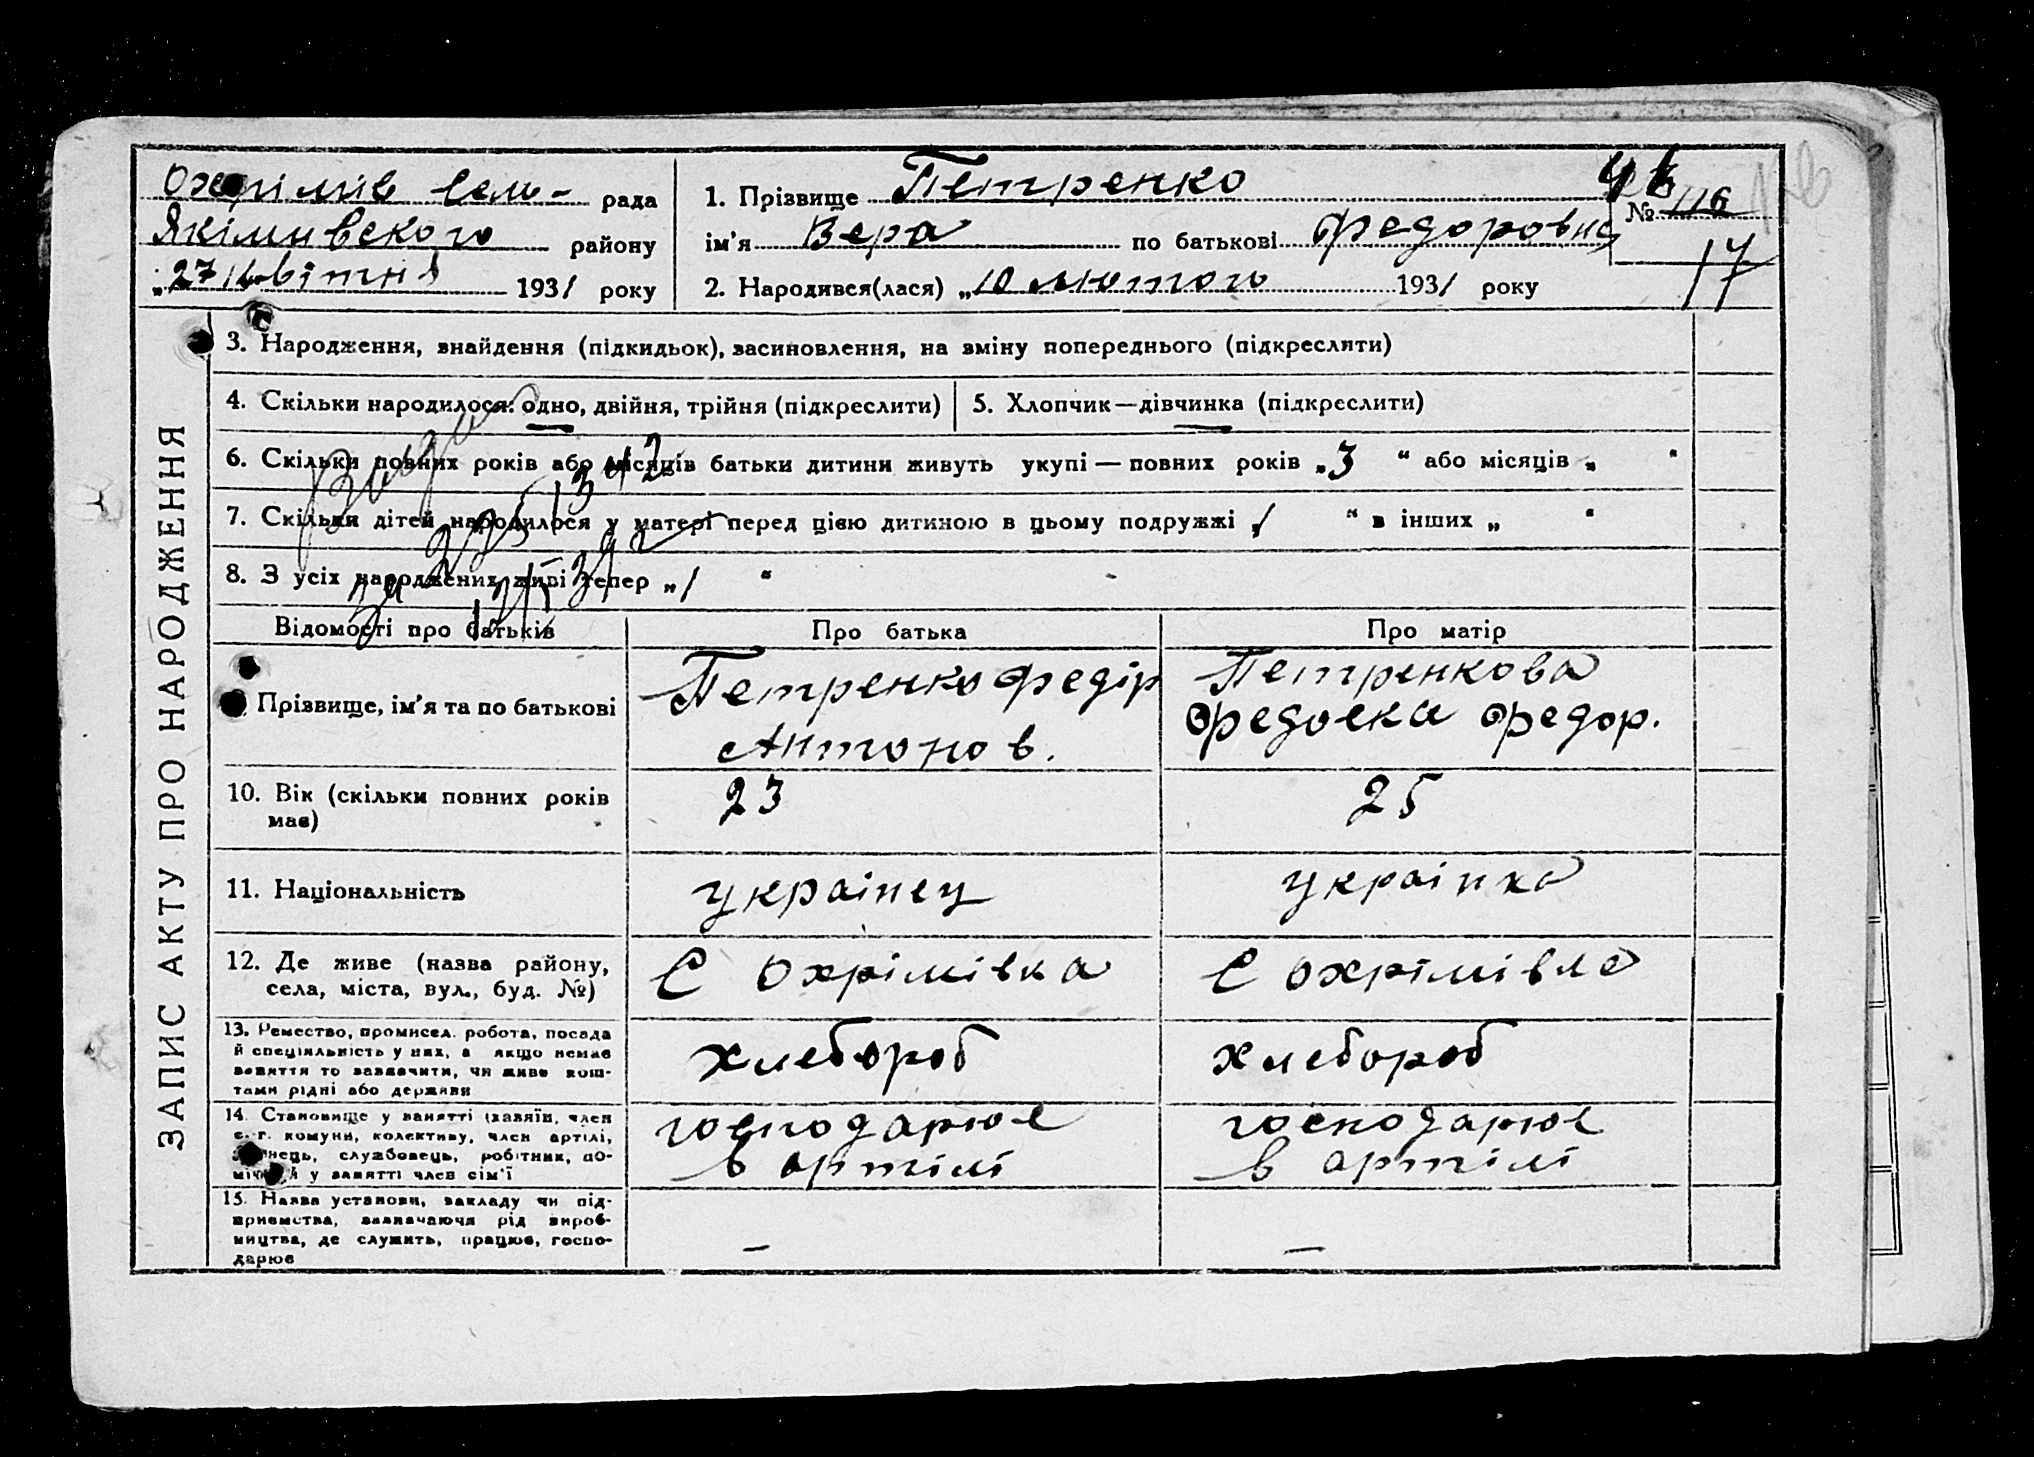 Охрімів сель- рада
Якімивского району
„27 Квітня 1931 року
1. Прізвище Петренко
ім'я Вера по батькові Федоровна
2. Народився(лася) „10 лютого 1931 року
№ 116
17
ЗАПИС АКТУ ПРО НАРОДЖЕННЯ
3. Народження, знайдення (підкидьок), засиновлення, на зміну попереднього (підкреслити)
4. Скільки народилося: одно, двійня, трійня (підкреслити)
5. Хлопчик—дівчинка (підкреслити)
6. Скільки повних років або місяців батьки дитини живуть укупі — повних років „3 “ або місяців „ “
7. Скільки дітей народилося у матері перед цією дитиною в цьому подружжі „1 “ в інших „ “
8. З усіх народжених живі тепер „1 “
Відомості про батьків
Про батька
Про матір
Прізвище, ім'я та по батькові
Петренко Федір
Антонов.
Петренкова
Федоска Федор.
10. Вік (скільки повних років
має)
23
25
11. Національність
українец
українка
12. Де живе (назва району,
села, міста, вул., буд. №)
С Охрімівка
С Охрімівле
13. Ремество, промисел. робота, посада
й спеціяльність у них, а якщо немає
заняття то зазначити, чи живе кош-
тами рідні або держави
хлебороб
хлебороб
14. Становище у занятті (хазяїн, член
с.-г. комуни, колективу, член артілі,
службовець, робітник, по-
у занятті член сім'ї
господарює
в артілі
господарює
в артілі
15. Назва установи, закладу чи під-
приємства, зазначаючи рід вироб-
ництва, де служить, працює, госпо-
дарює
–
–